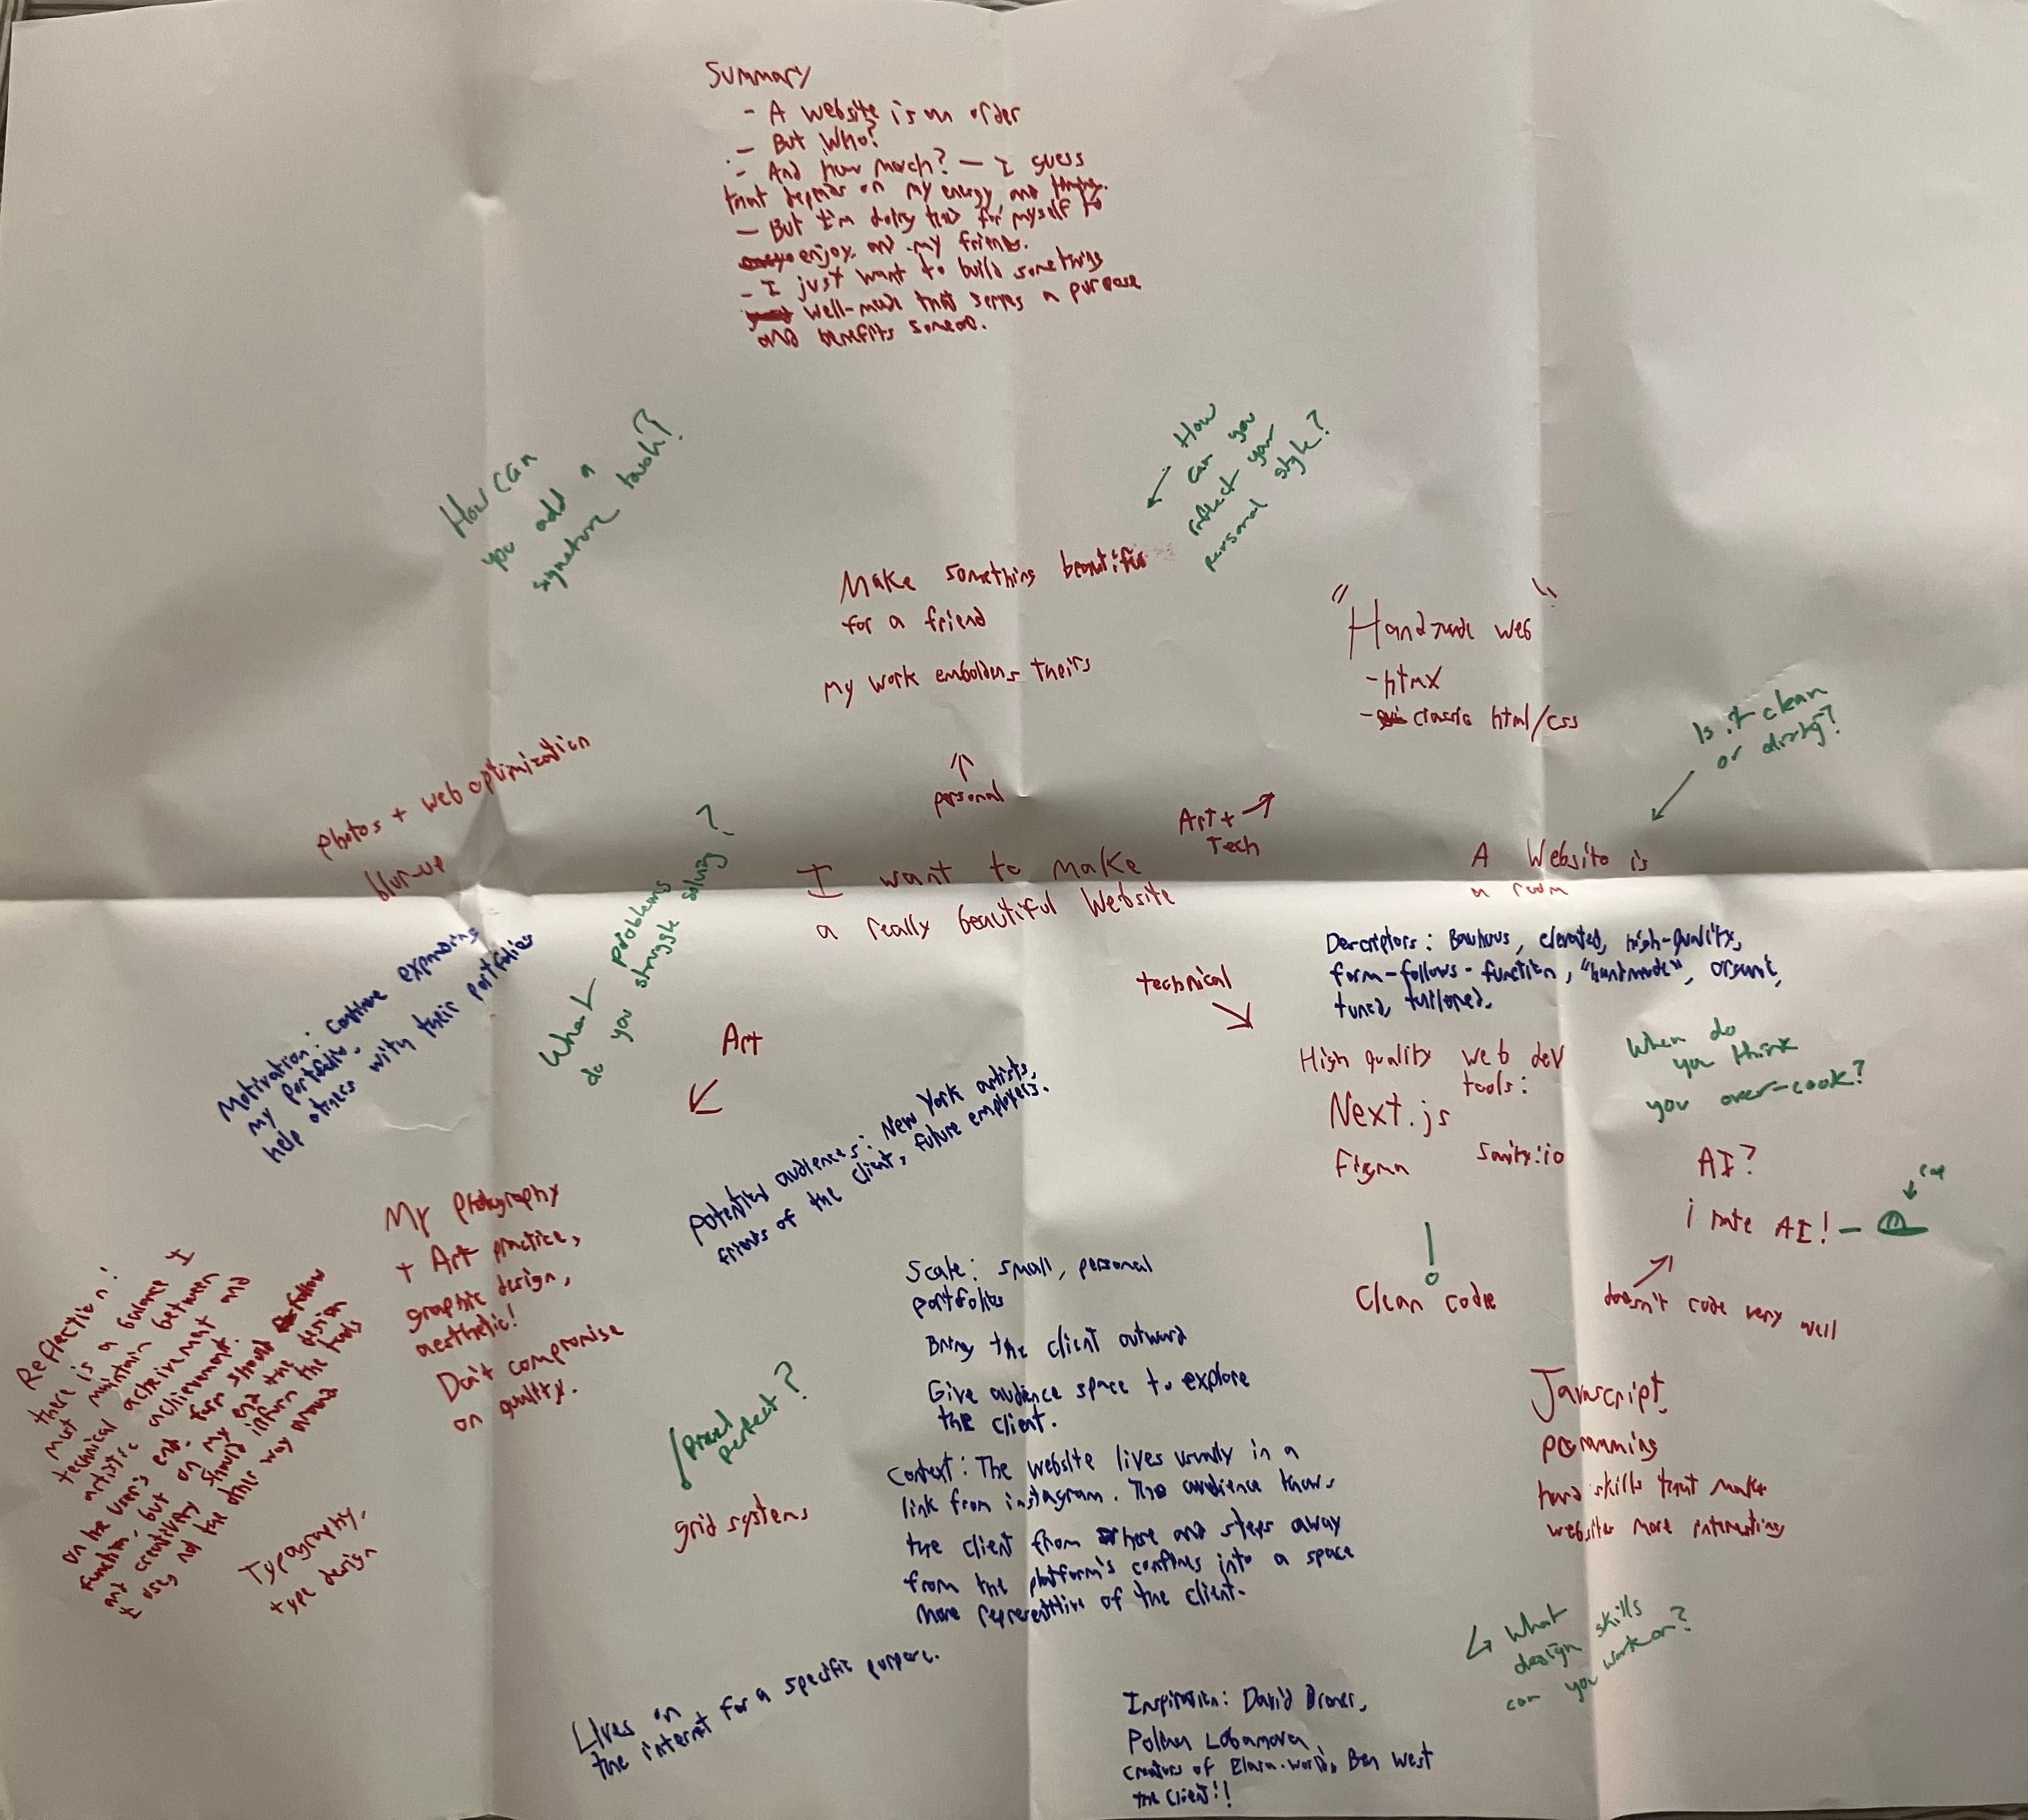 Summary
- A website is an order
- But Who?
- And how much? — I guess
that depends on my energy, and
- But I'm doing this for myself to
enjoy, and my friends.
- I just want to build something
well-made that serves a purpose
and benefits someone.
How can
you add a
signature touch?
How
can you
reflect your
personal style?
Make something beautiful
for a friend
My work emboldens theirs
"Handmade web"
- htmx
- classic html/css
Is it clean
or dirty?
photos + web optimization
blur-up
↑
personal
Art +
Tech
I want to make
a really beautiful website
A website is
a room
What problems
do you struggle solving?
Motivation: Continue expanding
my portfolio.
help others with their portfolios
Art
technical
Descriptors: Bauhaus, elevated, high-quality,
form-follows-function, "handmade", organic,
tuned, tailored.
High quality web dev
tools:
Next.js
Figma
Sanity.io
When do
you think
you over-cook?
AI?
i hate AI! —
cap
doesn't code very well
Clean code
Potential audiences: New York artists,
friends of the client, future employers.
My photography
+ Art practice,
graphic design,
aesthetic!
Don't compromise
on quality.
Reflection:
there is a balance I
must maintain between
technical acheivement and
artistic achievement.
on the user's end, form should follow
function, but on my end the design
and creativity should inform the tools
I use, not the other way around
Typography,
type design
pixel
perfect?
grid systems
Scale: small, personal
portfolios
Bring the client outward
Give audience space to explore
the client.
Context: The website lives usually in a
link from instagram. The audience knows
the client from there and steps away
from the platform's confines into a space
more representitive of the client.
Javascript
programming
hard skills that make
websites more interesting
What
design skills
can you work on?
Lives on
the internet for a specific purpose.
Inspiration: David
Polina Lobanova,
creators of Elara.world, Ben West
the client!!